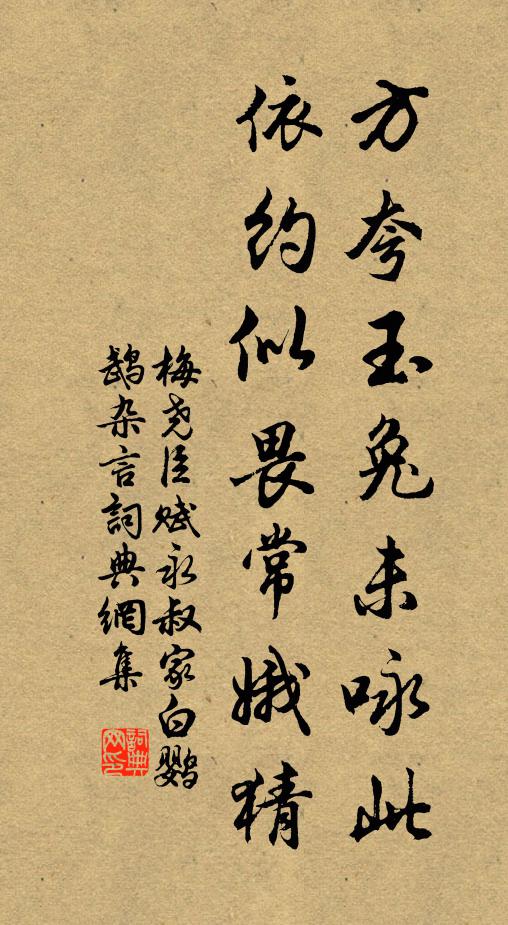 方夸玉兔未咏此
依约似畏常娥猜
梅尧臣赋永叔家白鹦
鹉杂言詞典網集
詞典
网印